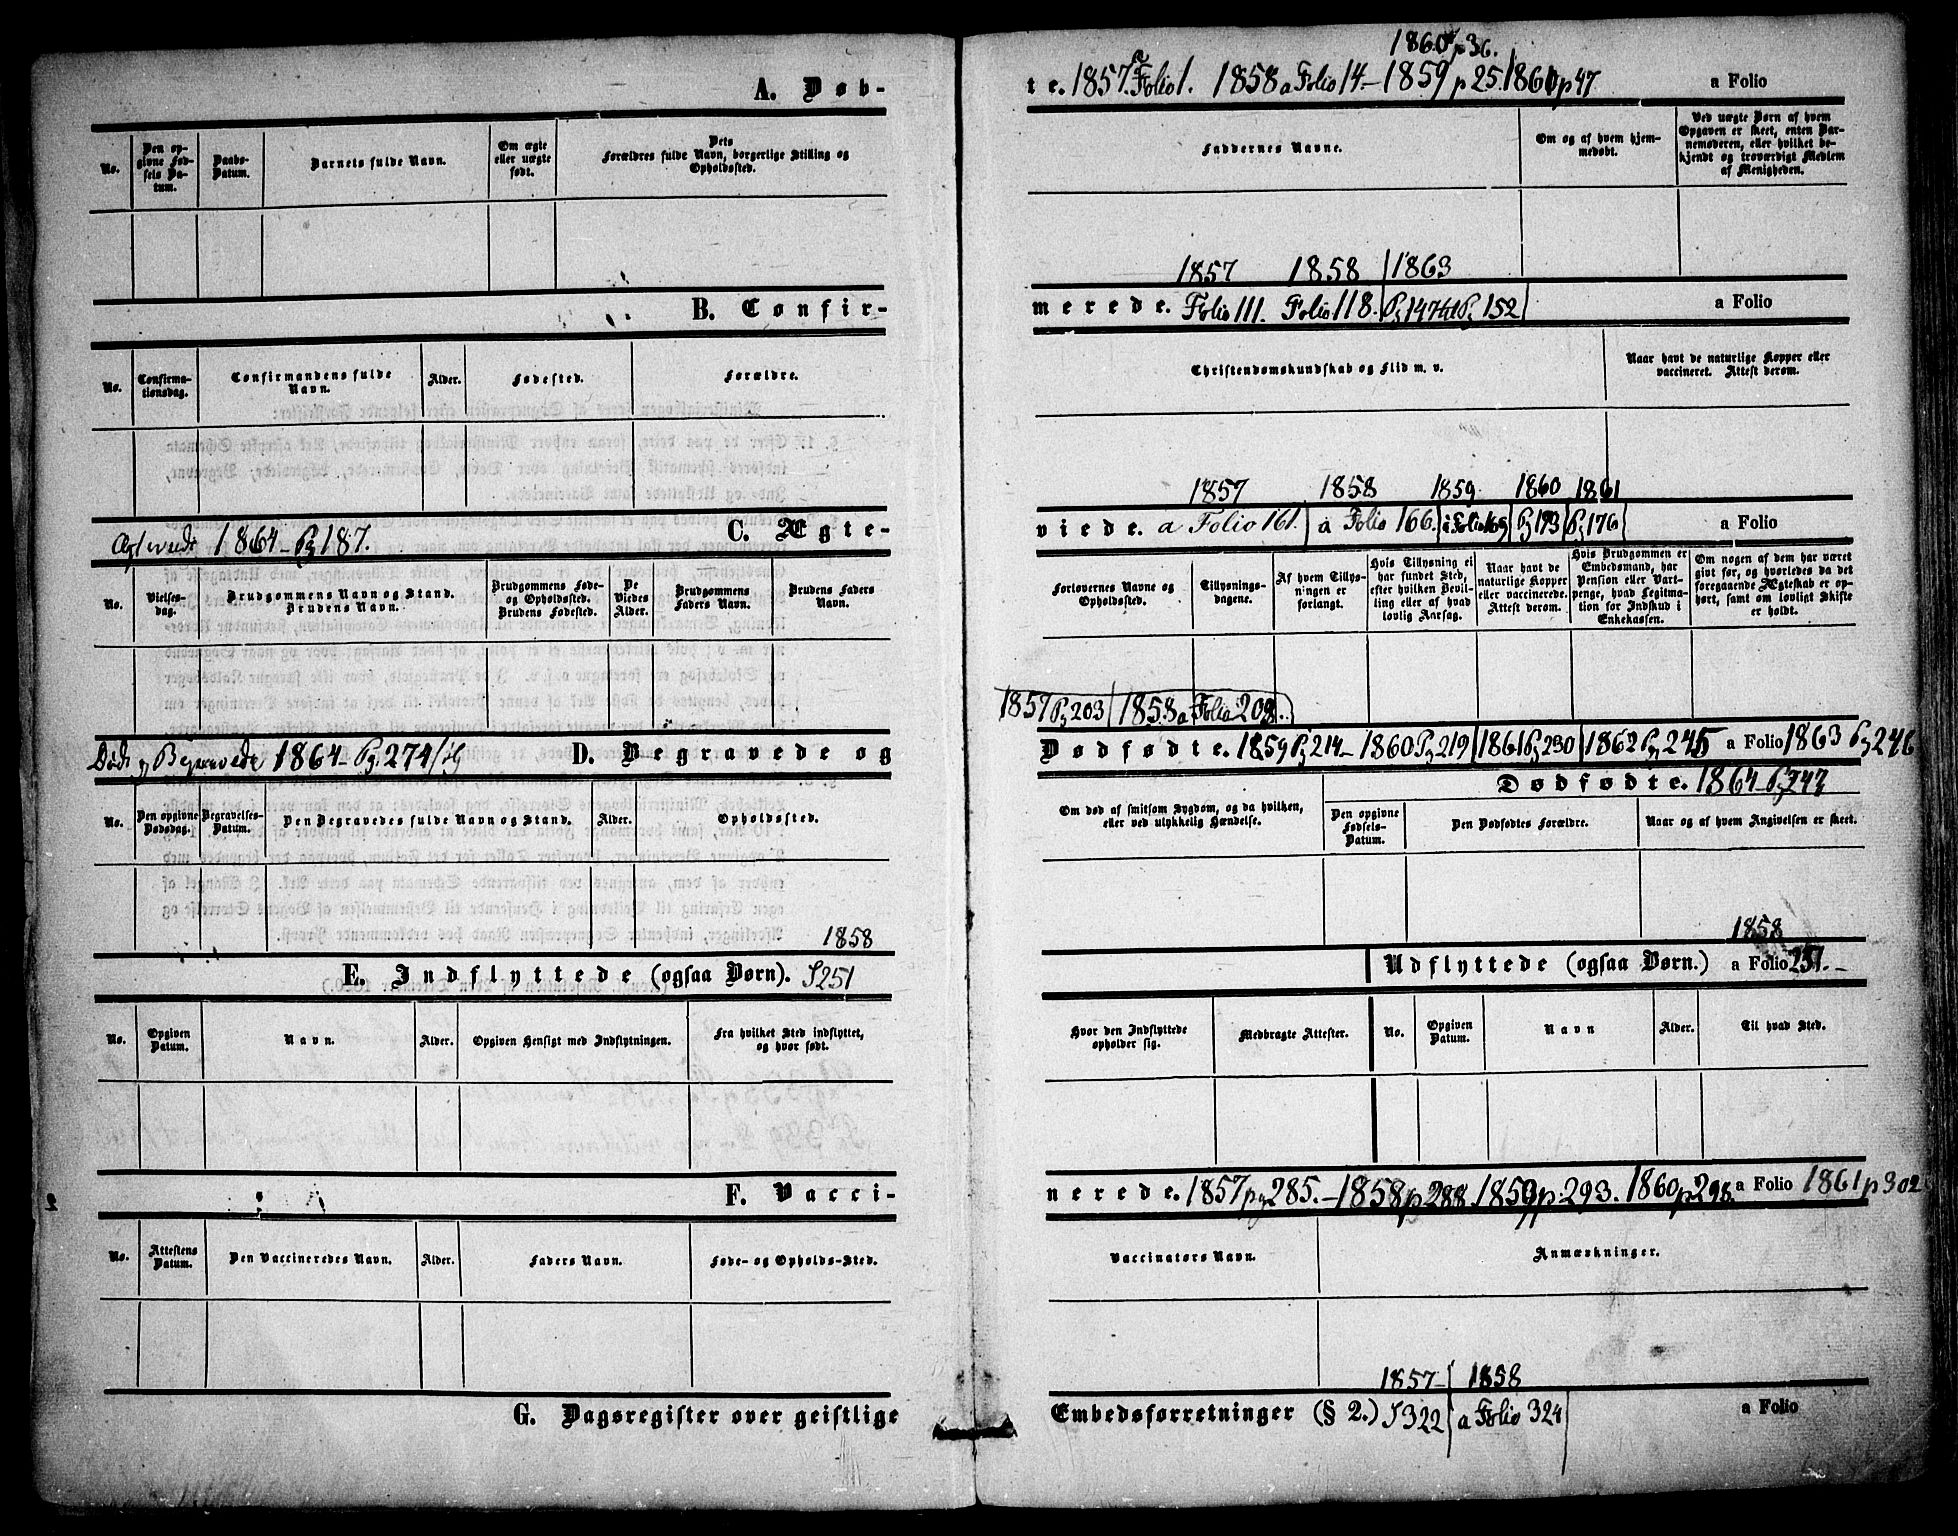 1860 p36.
A. Døbte. 1857. a Folio 1. 1858 a Folio 14 – 1859 p 25. 1861 p 47 a Folio
No.
Den opgivne Fødsels Datum.
Daabs-Datum.
Barnets fulde Navn.
Om ægte eller uægte født.
Dets Forældres fulde Navn, borgerlige Stilling og Opholdssted.
Faddernes Navne.
Om og af hvem hjemmedøbt.
Ved uægte Børn af hvem Opgaven er skeet, enten Barnemoderen, eller hvilket bekjendt og troværdigt Medlem af Menigheden.
1857 1858 1863
B. Confirmerede. Folio 111. Folio 118. Pg 147 til Pg 152 a Folio
No.
Confirmationsdag.
Confirmandens fulde Navn.
Alder.
Fødested.
Forældre.
Christendomskundskab og Flid m. v.
Naar havt de naturlige Kopper eller vaccineret. Attest derom.
1857 1858 1859 1860 1861
C. Ægteviede. a Folio 161. a Folio 166. a Folio 169 Pg 173 Pg 176 a Folio
1864 – Pg 187.
No.
Vielsesdag.
Brudgommens Navn og Stand. Brudens Navn.
Brudgommens Føde- og Opholdssted. Brudens Fødested.
De Viedes Alder.
Brudgommens Faders Navn.
Brudens Faders Navn.
Forlovernes Navne og Opholdssted.
Tillysningsdagene.
Af hvem Tillysningen er forlangt.
Hvis Tillysning ei har fundet Sted, efter hvilken Bevilling eller af hvad lovlig Aarsag.
Naar havt de naturlige Kopper eller vaccinerede. Attest derom.
Hvis Brudgommen er Embedsmand, har Pension eller Vartpenge, hvad Legitimation for Indskud i Enkekassen.
Om nogen af dem har været givt før, og hvorledes da det foregaaende Ægteskab er ophørt, samt om lovligt Skifte er holdt.
1857 Pg 203 1858 a Folio 209.
Døde og Begravede 1864 – Pg. 274
D. Begravede og Dødfødte. 1859 Pg 214 – 1860 Pg 219 1861 Pg 230 1862 Pg 245 a Folio 1863 Pg 246
Dødfødte. 1864
No.
Den opgivne Dødsdag.
Begravelses-Datum.
Den Begravedes fulde Navn og Stand.
Alder.
Opholdssted.
Om død af smitsom Sygdom, og da hvilken, eller ved ulykkelig Hændelse.
Den opgivne Fødsels-Datum.
Den Dødfødtes Forældre.
Naar og af hvem Angivelsen er skeet.
1858
E. Indflyttede (ogsaa Børn). S 251
1858
Udflyttede (ogsaa Børn.) a Folio 257.
No.
Opgiven Datum.
Navn.
Alder.
Opgiven Hensigt med Indflytningen.
Fra hvilket Sted indflyttet, og hvor født.
Hvor den Indflyttede opholder sig.
Medbragte Attester.
No.
Opgiven Datum.
Navn
Alder.
Til hvad Sted.
F. Vaccinerede. 1857 pg 285. – 1858 p 288. 1859 p. 293. 1860 p 298. a Folio 1861 p 302
No.
Attestens Datum.
Den Vaccineredes Navn.
Alder.
Faders Navn.
Føde- og Opholds-Sted.
Vaccinators Navn.
Anmærkninger.
1857 – 1858
G. Dagsregister over geistlige Embedsforretninger (§ 2.) S 322 a Folio 324 a Folio